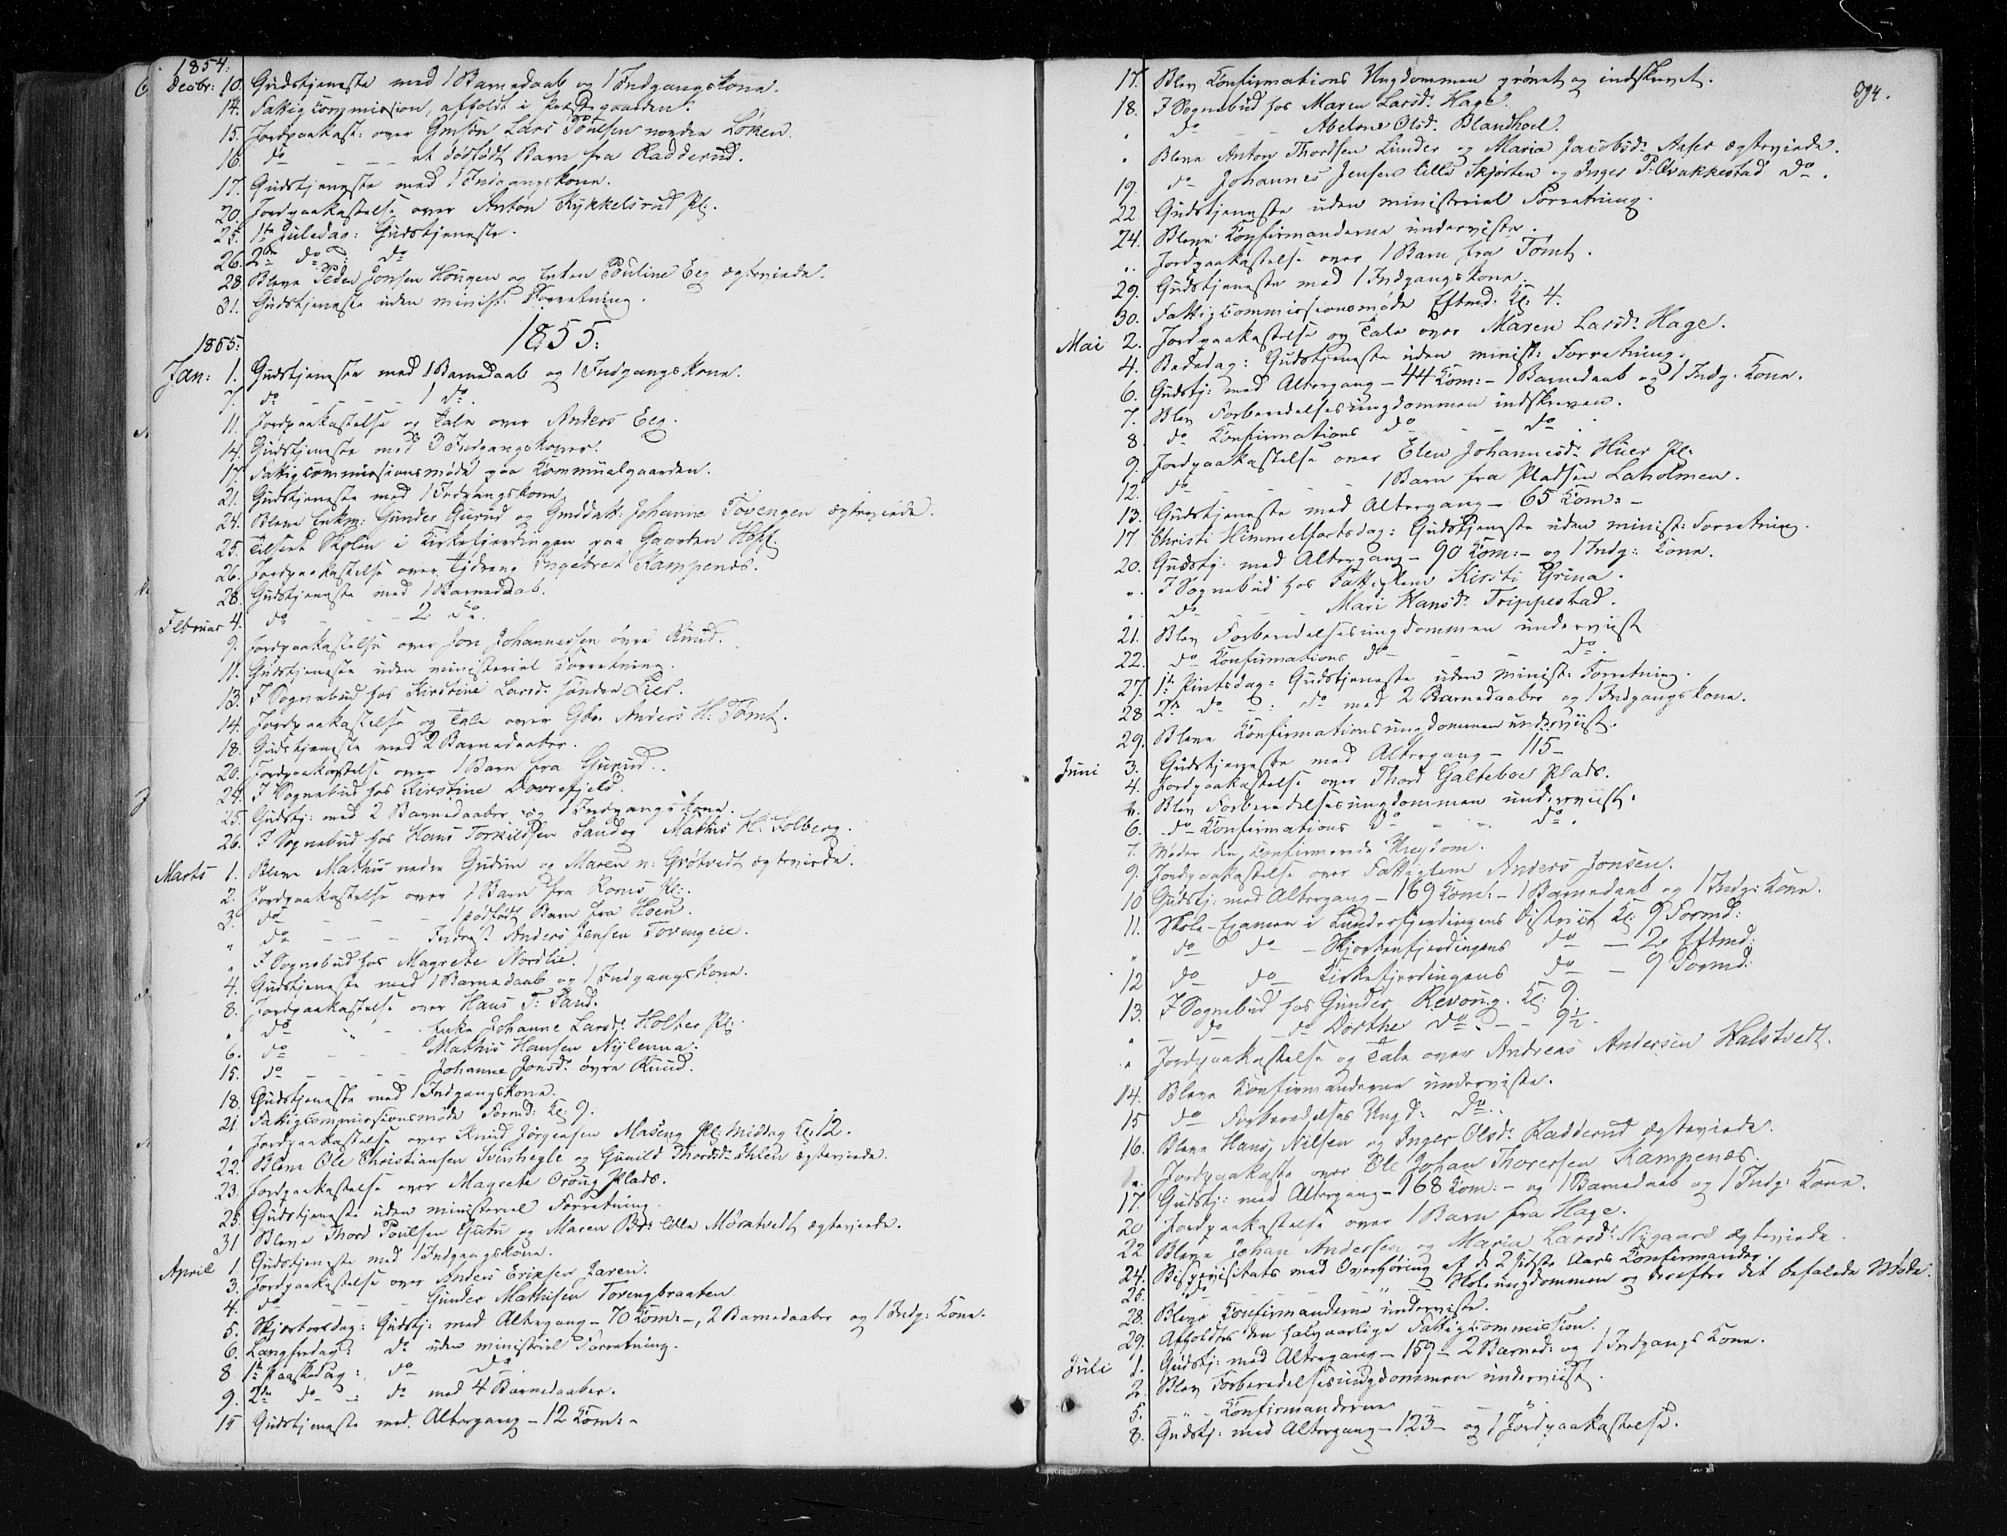 1854.
Decbr: 10. Gudstjeneste med 1 Barnedaab og 1 Indgangskone.
14. Fattigcommission, afholdt i Præstegaarden.
15. Jordpaakast: over Gmson Lars Poulsen nordre Løken.
16. do - - - et dødfødt Barn fra Radderud.
17. Gudstjeneste med 1 Indgangskone.
20. Jordpaakastelse over Anton Kykkelsrud Pl.
25. 1ste Juledag: Gudstjeneste.
26. 2den do : do
28 Bleve Peder Jonsen Haugen og Enken Pauline Eeg ægteviede.
31. Gudstjeneste uden minist: Forretning.
1855:
1855:
Jan: 1. Gudstjeneste med 1 Barnedaab og 1 Indgangskone.
7. do - - - 1 do.
11. Jordpaakastelse og Tale over Anders Eeg.
14. Gudstjeneste med 3 Indgangskoner.
17. Fattigcommissionsmøde paa Kommunalgaarden.
21. Gudstjeneste med 1 Indgangskone.
24. Bleve Enkm: Gunder Gurud og Gmddatt: Johanne Tovengen ægteviede.
25. Tilseet Skolen i Kirkefjerdingen paa Gaarden Hoff.
26. Jordpaakastelse over Ingebret Kampenæs.
28. Gudstjeneste med 1 Barnedaab.
Februar 4. do - - - 2 do.
9. Jordpaakastelse over Jon Johannessen øvre Ruud.
11. Gudstjeneste uden ministeriel Forretning.
13. I Sognebud hos Kirstine Larsd: søndre Lier.
14. Jordpaakastelse og Tale over Gbr. Anders H. Tømt.
18. Gudstjeneste med 2 Barnedaaber.
20. Jordpaakastelse over 1 Barn fra Gurud.
24. I Sognebud hos Kirstine Dovrefjeld.
25. Gudstj: med 2 Barnedaaber og 1 Indgangskone.
26. I Sognebud hos Hans Torkildsen Sand og Mathis H. Solberg.
Marts 1. Bleve Mathis nedre Gudim og Maren n: Grøtvedt ægteviede.
2. Jordpaakastelse over 1 Barn fra Roms Pl:.
3. do - - - 1 dødfødt Barn fra Hoen.
" do - - - Anders Jensen Tovengen.
" I Sognebud hos Magrete Nordlie.
4. Gudstjeneste med 1 Barnedaab og 1 Indgangskone.
8. Jordpaakastelse over Hans T: Sand.
" do " - Enke Johanne Larsd: Holter Pl:
6. do - - - Mathis Hansen Nylenna:
15. do - - - Johanne Jonsd: øvre Ruud.
18. Gudstjeneste med 1 Indgangskone.
21 Fattigcommissionsmøde Formd: Kl: 9.
" Jordpaakastelse over Knud Jørgensen Maseng Pl: Middag Kl: 12.
22. Bleve Ole Christiansen og Gunild Thordsd: ægteviede.
23. Jordpaakastelse over Magrete Oroug Plads.
25. Gudstjeneste uden ministeriel Forretning.
31 Bleve Thord Poulsen Gutu og Maren Lille Mørstvedt ægteviede.
April 1. Gudstjeneste med 1 Indgangskone.
3. Jordpaakastelse over Anders Eriksen Jaren.
4. do - - - Gunder Mathisen Tovengbraaten
5. Skjærtorsdag: Gudstj: med Altergang - 70 Kom: -, 2 Barnedaaber og 1 Indg: Kone.
6. Langfredag: do uden ministriel Forretning.
8 1ste Paaskedag: do do
9. 2den do : do med 4 Barnedaaber.
15 Gudstjeneste med Altergang - 12 Kom: -
394.
17. Blev Confirmations Ungdommen prøvet og indskrevet.
18. I Sognebud hos Maren Larsd: Hage.
" do - - Abelone Olsd: Blandhoel.
" Bleve Anton Thordsen Lunder og Maria Jacobsd: Aaser ægteviede.
19. do Johannes Jensen lille Skjørten og Inger P: Qvakkestad do.
22 Gudstjeneste uden ministeriel Forretning.
24. Bleve Konfirmanderne underviste.
" Jordpaakastelse over 1 Barn fra Tømt.
29. Gudstjeneste med 1 Indgangskone.
30. Fattigcommissionsmøde Eftmd: Kl: 4.
Mai 2. Jordpaakastelse og Tale over Maren Larsd: Hage.
4. Bededag: Gudstjeneste uden minist: Forretning.
6. Gudstj: med Altergang - 44 Kom: - 1 Barnedaab og 1 Indg. Kone.
7. Blev Forberedelsesungdommen indskreven.
8. do Konfirmations do - - do
9. Jordpaakastelse over Elen Johannesd: Huer Pl:
12. do - - - 1 Barn fra Pladsen Laholmen.
13. Gudstjeneste med Altergang - 65 Kom: -
17. Christi Himmelfartsdag: Gudstjeneste uden minist: Forretning.
20. Gudstj: med Altergang - 90 Kom: - og 1 Indg: Kone.
" I Sognebud hos Fattiglem Kirsti Grina.
" do - - Mari Hansd: Trippestad.
21. Blev Forberedelsesungdommen underviist
22. do Konfirmations do - - do.
27. 1ste Pintsdag: Gudstjeneste uden minist: Forretning.
28 2den do : do med 2 Barnedaaber og 1 Indgangskone.
29. Bleve Konfirmationsungdommen underviist.
Juni 3. Gudstjeneste med Altergang - 115 -
4. Jordpaakastelse over Thord Galteboe Plads.
" Blev Forberedelsesungdommen underviist.
6. do Konfirmations do - - do.
7. Møder den Konfirmerede Ungdom.
9. Jordpaakastelse over Fattiglem Anders Jonsen.
10 Gudstj: med Altergang - 169 Kom: - 1 Barnedaab og 1 Indg: Kone.
11. Skole-Examen i Lunderfjerdingens District Kl: 9 Formd:
" do do - Skjørtenfjerdingens do - 2 Eftmd:
12 do do Kirkefjerdingens do - 9 Formd:
13. I Sognebud hos Gunder Revoug. Kl: 9.
" - do - do Dorthe do - - 9½.
" Jordpaakastelse og Tale over Andreas Andersen Halstvedt.
14. Bleve Konfirmanderne underviste.
15 do Forberedelses Ungd: do.
16. Bleve Hans Nilsen og Inger Olsd: Radderud ægteviede.
" Jordpaakaste over Ole Johan Thoresen Kampenæs.
17. Gudstj: med Altergang - 168 Kom: - og 1 Barnedaab og 1 Indg: Kone.
20 Jordpaakastelse over 1 Barn fra Hage.
22 Bleve Johan Andersen og Maria Larsd: Nygaard ægteviede.
24. Bispevisitats med Overhøring af de 2 sidste Aars Konfirmander.
25. " do " " Skoleungdommen og derefter det befalede Møde.
28. Bleve Konfirmanderne underviste.
29. Afholdtes den halvaarlige Fattigcommission.
Juli 1. Gudstj: med Altergang - 159 - 2 Barned: og 1 Indgangs Kone.
2. Blev Forberedelsesungdommen underviist.
5. " - Konfirmanderne "
8. Gudstj: med Altergang - 123 - og 1 Jordpaakastelse.